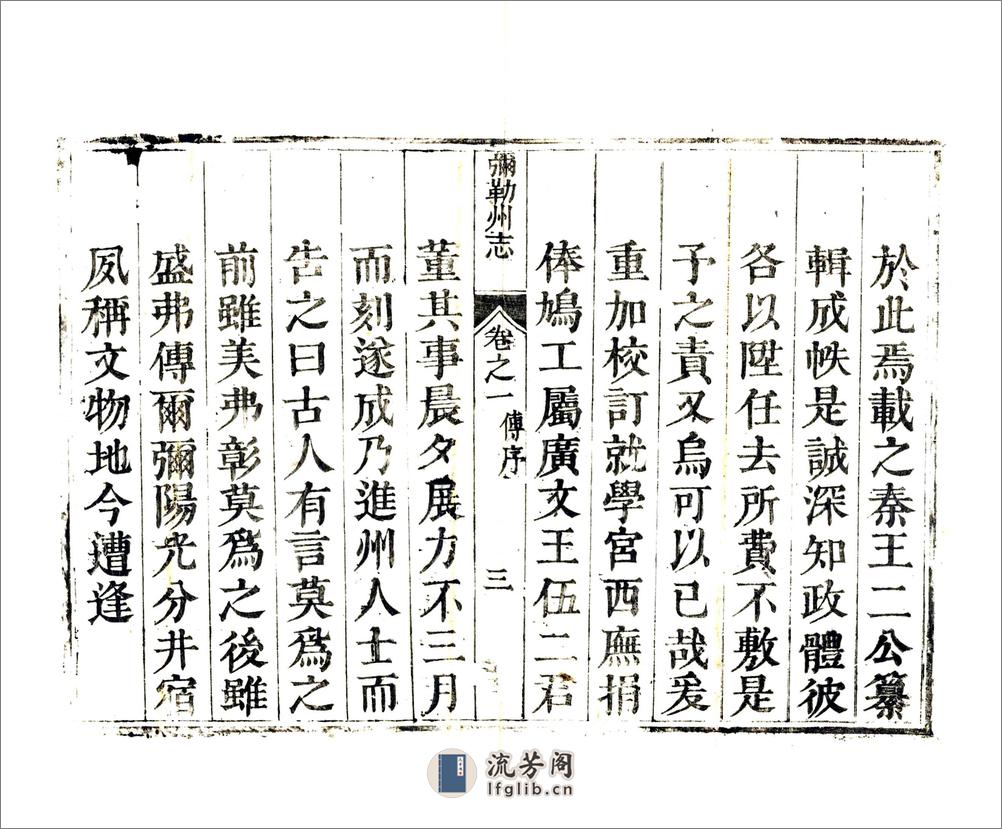 於此焉載之秦王二公纂
輯成帙是誠深知政體彼
各以陞任去所費不敷是
予之責又烏可以已哉爰
重加校訂就學宮西廡捐
俸鳩工屬廣文王伍二君
彌勒州志
卷之一
傳序
三
董其事晨夕展力不三月
而刻遂成乃進州人士而
告之曰古人有言莫爲之
前雖美弗彰莫爲之後雖
盛弗傳爾彌陽光分井宿
夙稱文物地今遭逢
流芳阁
lfglib.cn